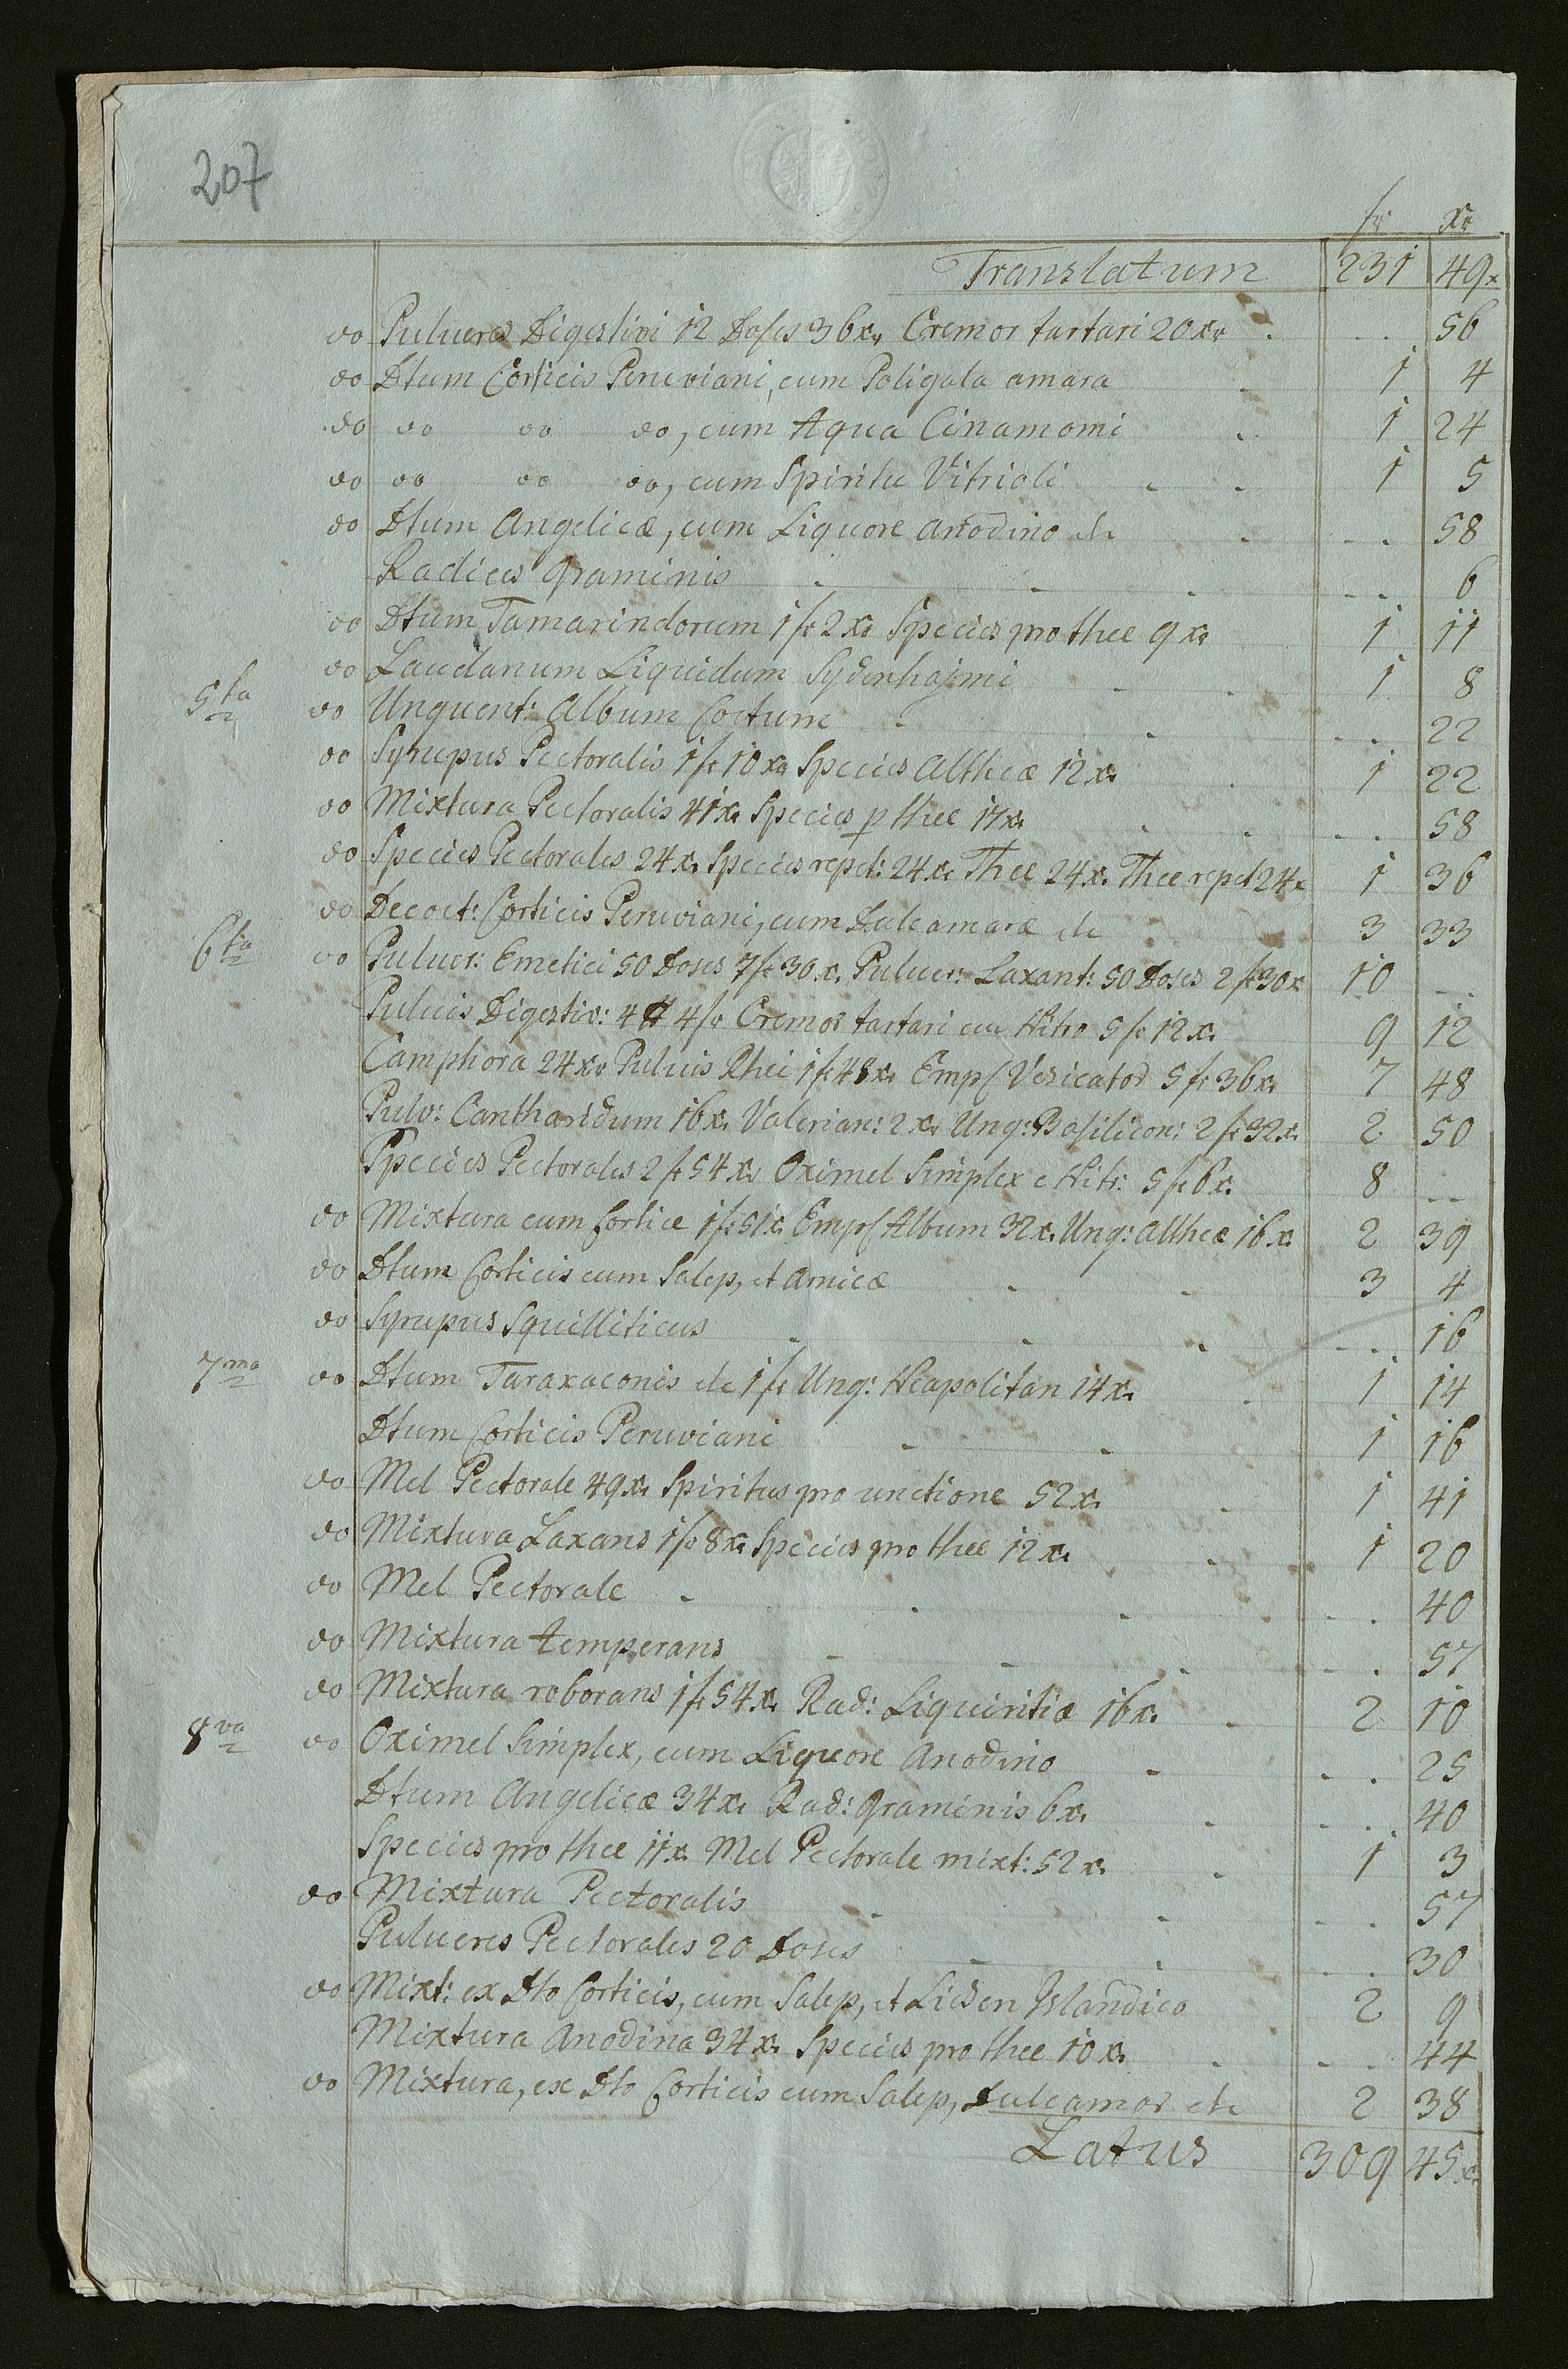 207
fr xr
Translatum 231 49x
do Pulueres Digestivi 12 Doses 36xr Cremor tartari 20xr . . . 56
do Dtum Corticis Peruviani, cum Poligala amara 1 4
do do do do, cum Aqua Cinamomi 1 24
do do do do, cum Spiritu Vitrioli 1 5
do Dtum Angelicæ, cum Liquore anodino etc . . . 58
Radices graminis . . . 6
do Dtum Tamarindorum 1 fr 2 xr Species pro thee 9 xr 1 11
do Laudanum Liquidum Sydenhajmi 1 8
5ta do Unguent: Album Coctum . . . 22
do Syrupus Pectoralis 1 fr 10 xr Species Altheæ 12 xr 1 22
do Mixtura Pectoralis 41 xr Species p thee 17 xr . . . 58
do Species Pectorales 24 xr Species repet: 24 xr Thee 24 xr Thee repet 24 x 1 36
do Decoct: Corticis Peruviani, cum Dulcamaræ etc 3 33
6ta do Puluer: Emetici 50 Doses 7 fr 30 x. Puluer: Laxant: 50 Doses 2 fr 30 x 10 . .
Puluis Digestiv: 4 ℔ 4 fr Cremor tartari cu Nitro 5 fr 12 xr 9 12
Camphora 24 xr Puluis Rhei 1 fr 48 xr Empl Vesicator 5 fr 36 xr 7 48
Pulv: Cantharidum 16 xr Valerian: 2 xr Ung: Basilicon: 2 fr 32 xr 2 50
Species Pectorales 2 fr 54 xr Oximel Simplex c Nitr: 5 fr 6 xr 8 . .
do Mixtura cum Cortice 1 fr 51 x. Empl Album 32 x. Ung: Altheæ 16 x. 2 39
do Dtum Corticis cum Salep, et Arnicæ 3 4
do Syrupus Squilliticus . . . 16
7ma do Dtum Taraxaconis etc 1 fr Ung: Neapolitan 14 xr 1 14
Dtum Corticis Peruviani 1 16
do Mel Pectorale 49 xr Spiritus pro unctione 52 xr 1 41
do Mixtura Laxans 1 fr 8 xr Species pro thee 12 xr 1 20
do Mel Pectorale . . . 40
do Mixtura temperans . . . 57
do Mixtura roborans 1 fr 54 xr Rad: Liquiritiæ 16 xr 2 10
8va do Oximel Simplex, cum Liquore Anodino . . . 25
Dtum Angelicæ 34 xr Rad: graminis 6 xr . . . 40
Species pro thee 11 x Mel Pectorale mixt: 52 xr 1 3
do Mixtura Pectoralis . . . 57
Pulueres Pectorales 20 Doses . . . 30
do Mixt: ex Dto Corticis, cum Salep, et Lichen Islandico 2 9
Mixtura Anodina 34 xr Species pro thee 10 xr . . . 44
do Mixtura, ex Dto Corticis cum Salep, Dulcamar etc 2 38
Latus 309 45 x.